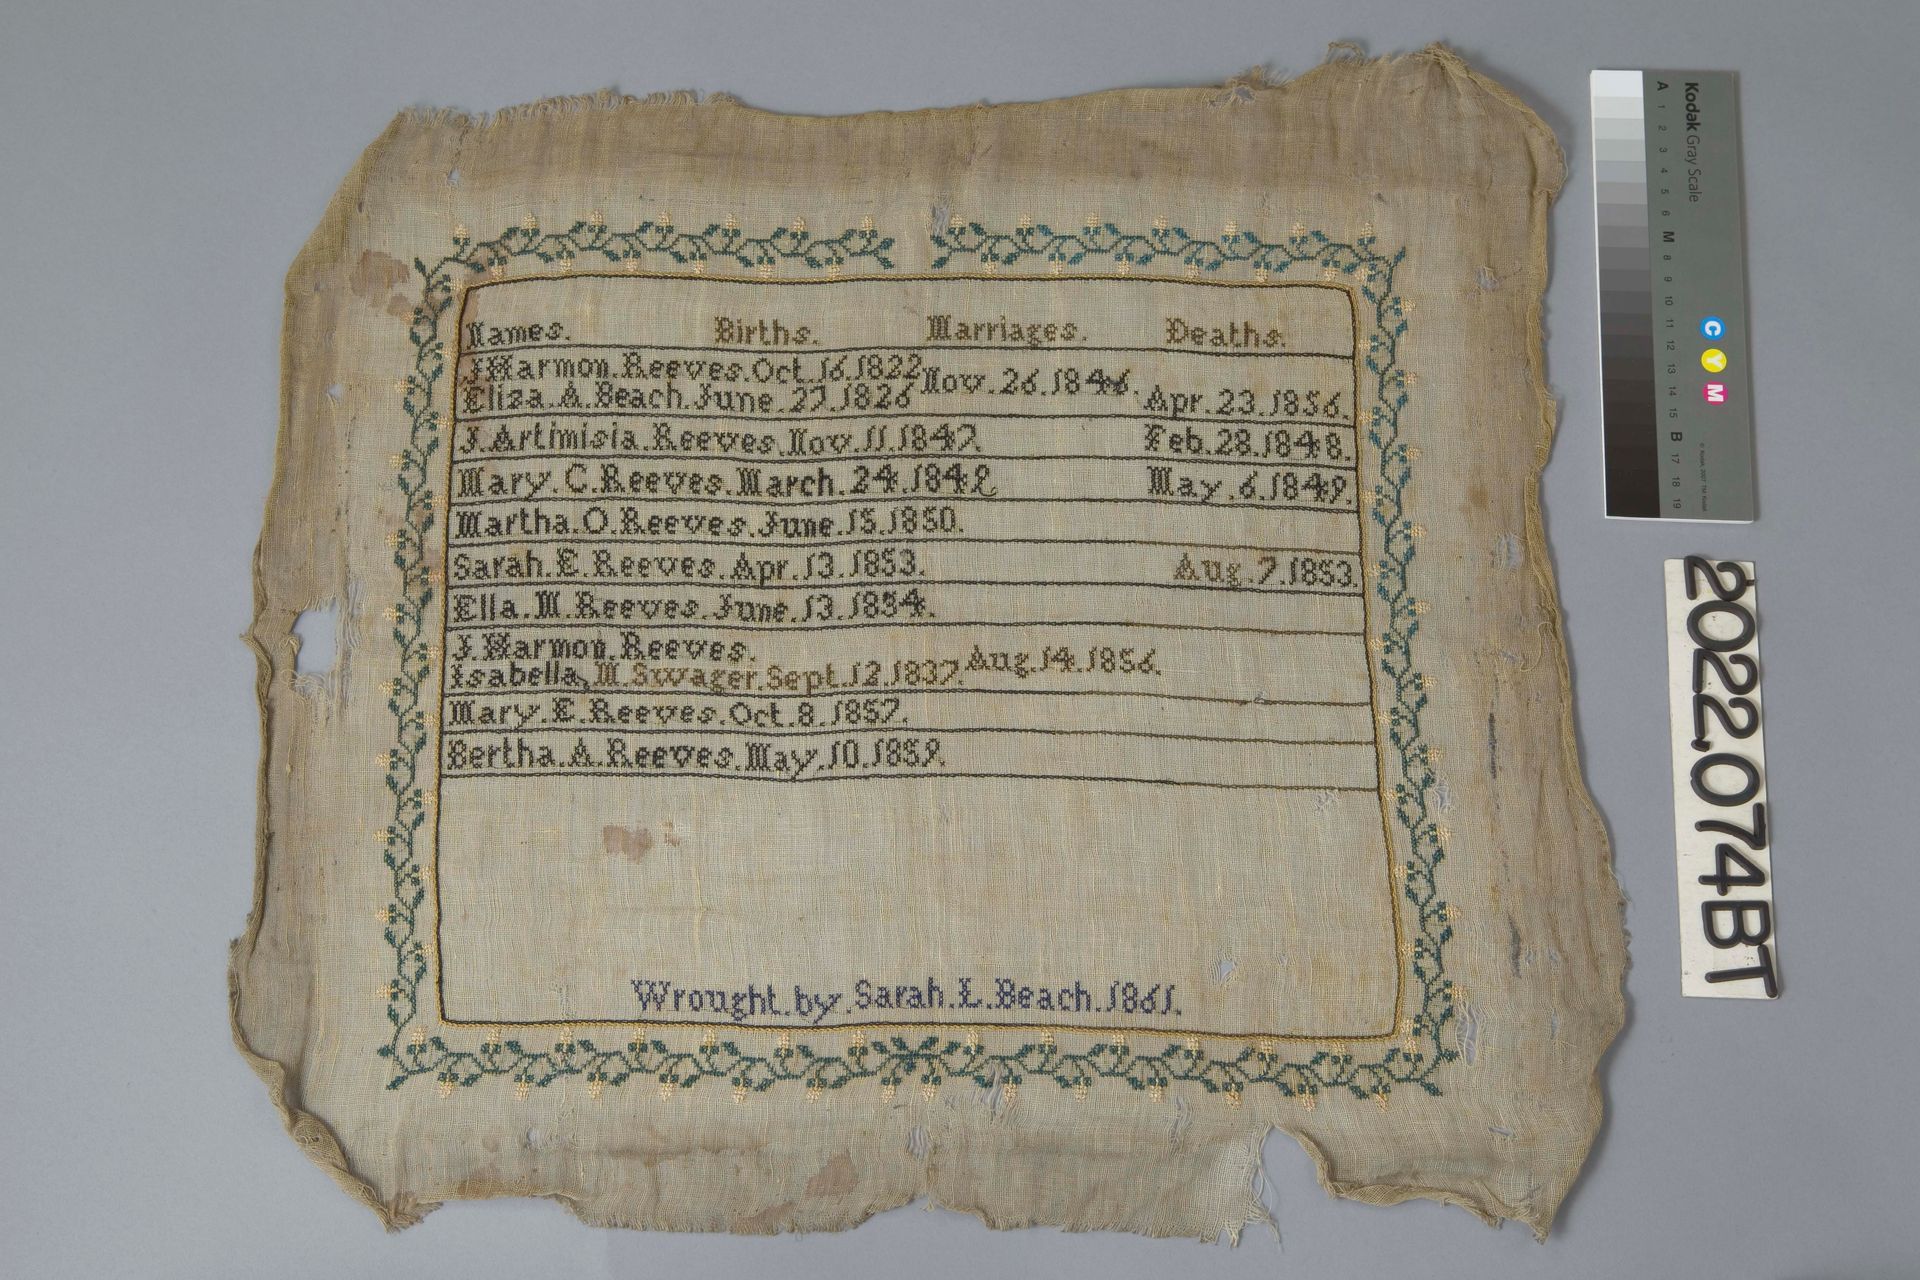 Names. Births. Marriages. Deaths.
J Harmon. Reeves. Oct. 16. 1822
Nov. 26. 1846.
Eliza. A. Beach. June. 27. 1826
Apr. 23. 1856.
J. Artimisia. Reeves. Nov. 11. 1847. Feb. 28. 1848.
Mary. C. Reeves. March. 24. May. 6. 1849.
Martha. O. Reeves. June. 15. 1850.
Sarah. E. Reeves. Apr. 13. 1853. Aug. 7. 1853.
Ella. M. Reeves. June. 13. 1854.
J. Harmon. Reeves.
Aug. 14. 1856.
Isabella. M. Swager. Sept. 12. 1837.
Mary. E. Reeves. Oct. 8. 1857.
Bertha. A. Reeves. May. 10. 1859.
Wrought. by. Sarah. L. Beach. 1861.
Kodak Gray Scale
A 1 2 3 4 5 6 M 8 9 10 11 12 13 14 15 B 17 18 19
C Y M
2022.074BT